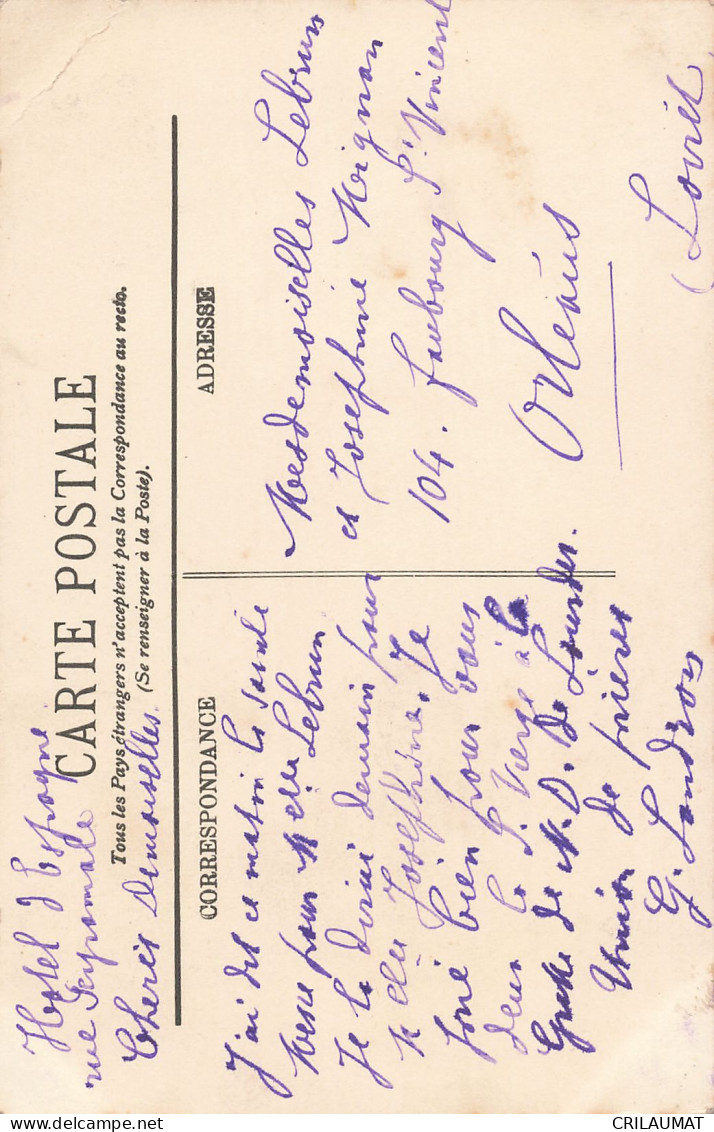 Hotel d'Espagne
rue Peyramale
CARTE POSTALE
Tous les Pays étrangers n'acceptent pas la Correspondance au recto.
(Se renseigner à la Poste).
Chères Demoiselles
CORRESPONDANCE
J'ai dit ce matin la Sainte
Messe pour Melle Lebrun
Je la dirai demain pour
Melle Josephine. Je
prie bien pour vous
deux la S. Vierge à la
Grotte de N. D. de Lourdes.
Union de prières
G. Landrou
ADRESSE
Mesdemoiselles Lebrun
et Josephine Mignan
104. faubourg St. Vincent
Orléans
(Loiret
delcampe.net
CRILAUMAT